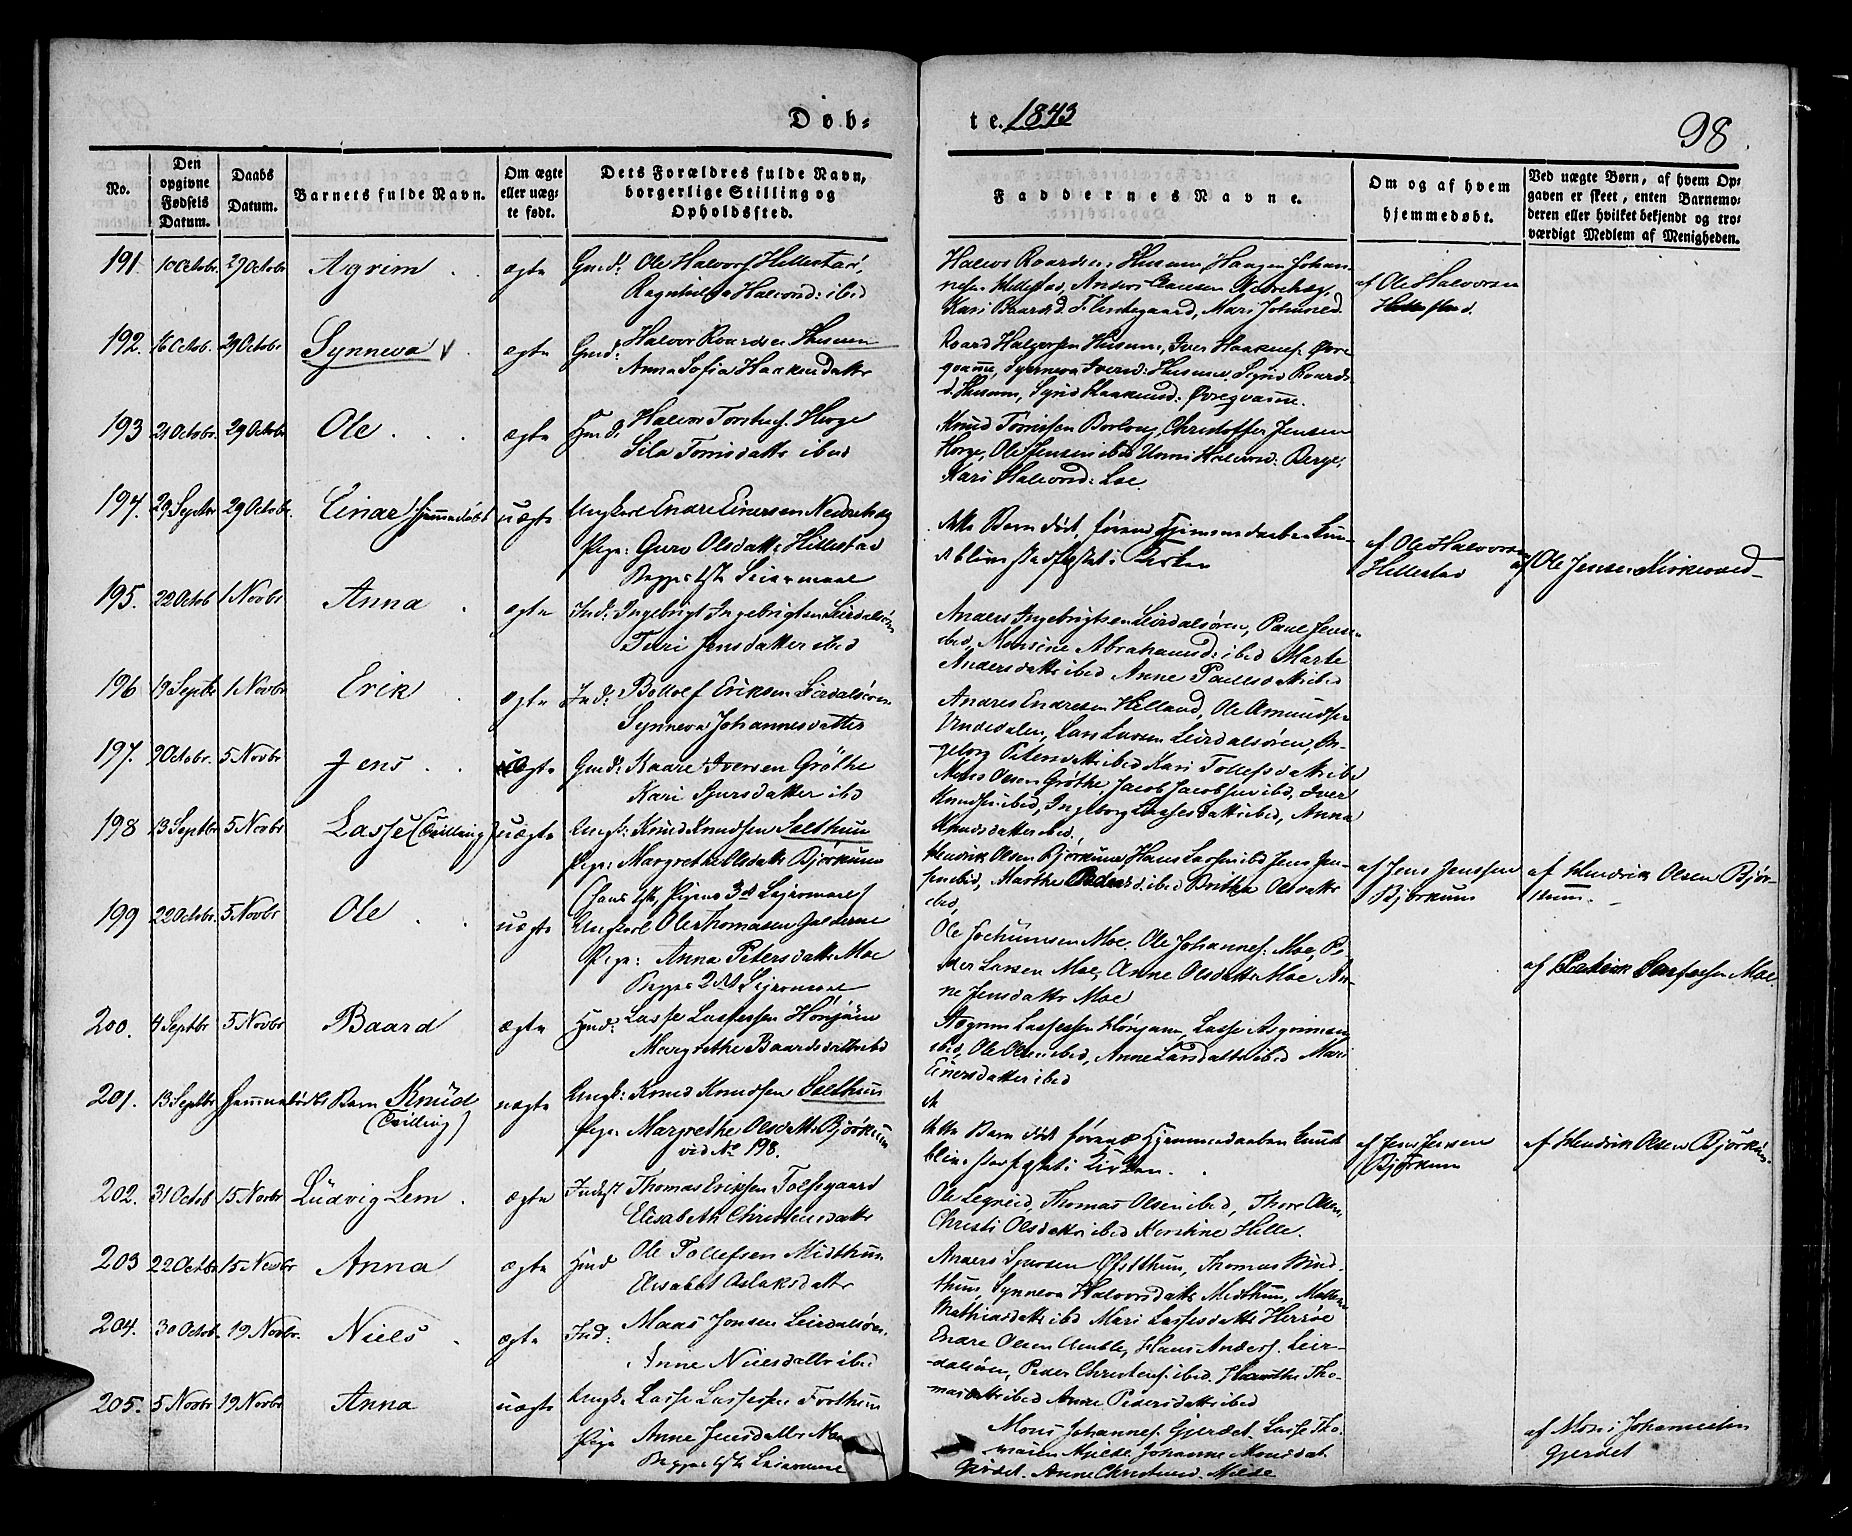 Døb-
te. 1843
98.
No.
Den opgivne Fødsels Datum.
Daabs Datum.
Barnets fulde Navn.
Om ægte eller uægte født.
Dets Forældres fulde Navn, borgerlige Stilling og Opholdssted.
Faddernes Navne.
Om og af hvem hjemmedøbt.
Ved uægte Børn, af hvem Opgaven er skeet, enten Barnemoderen eller hvilket bekjendt og troværdigt Medlem af Menigheden.
191. 10 Octobr 29 Octobr Agrim ægte Gmd: Ole Halvors Hillestad,
Ragnhilda Halvorsd: ibid
Halvor Roardsen Husum Haagen Johannesen Hillestad, Anders Clausen Nedrehæg,
Kari Baardsd. Mari Johannesd.
af Ole Halvorsen
Hillestad.
192. 16 Octob. 29 Octobr Synneva ægte Gmd: Halvor Roardsen Husum
Anna Sofia Haakensdatter
Roard Halvorsen Husum, Iver Haakens. Øvre
qvamme, Synneva Iversd: Husum, Sigrid Roards
d. Husum, Synva Haakensd: Øvreqvamme.
193 21 Octobr. 29 Octobr Ole ægte Hmd: Halvor Torstens. Horge
Sila Tomisdatter ibid
Knud Tomissen Borloug, Christoffer Jensen
Horge, Ole Jensen ibid Unni Halvorsd: Berge,
Kari Halvorsd: Loe.
194. 29 Septbr 29 Octobr. Einar Hjemmedøbt uægte Ungkarl Endre Einersen Nedrehæg
Pige: Guro Olsdatter Hillestad
Begges 1ste Leiermaal
dette Barn død, førend Hjemmedaaben kunde
blive stadfæstet i Kirken
af Ole Halvorsen
Hillestad
af Ole Jensen
195. 22 Octob 1 Novbr Anna ægte Ind: Ingebrigt Ingebrigtsen Leirdalsøren
Turi Jensdatter ibid
Anders Ingebrigtsen Leirdalsøren, Paul Jensen
ibid, Monsine Abrahamsd: ibid Marte
Andersdatter ibid Anne Paulsdatter ibid
196 19 Septbr 1 Novbr Erik ægte Ind: Bottolf Eriksen Leirdalsøren
Synneva Johannesdatter
Andres Endresen Helland, Ole Amundsen
Undedalen, Lars Larsen Leirdalsøren, Ingeborg
Petersdatter ibid Kari Tollefsdatter ibid
197. 9 Octobr. 5 Novbr Jens ægte Gmd: Kaare Iversen Grøthe
Kari Sjursdatter ibd
Mons Olsen Grøthe, Jacob Jacobsen ibid, Iver
Knudsen ibid, Ingeborg Lassesdatter ibid, Anna
Knudsdatter ibid.
198 13 Septbr 5 Novbr Lasse (Tvilling) uægte Ungk: Knud Knudsen Solthun
Pige: Margrethe Olsdatter Bjørkum
(hans 1ste Pigens 3d Leiermaal)
Hendrik Olsen Bjørkum Hans Larsen ibid Jens Jensen
ibid, Marthe Pedersd ibid Brithe Olsdatter
ibid,
af Jens Jenssen
Bjørkum
af Hendrik Olsen Bjørkum.
199 22 Octobr. 5 Novbr Ole uægte Ungkarl Ole Thomasen Galderne
Pige: Anna Petersdatter Moe
Begges 2det Leiermaal
Ole Jochumsen Moe. Ole Johannes. Moe, Peder
Larsen Moe, Anne Olsdatter Moe Anne
Jensdatter Moe
af Moe
200. 4 Septbr 5 Novbr Baard ægte Hmd: Lasse Lassessen Hønjum
Margrethe Baardsdatter ibd
Asgrim Lassessen Hønjum, Lasse Asgrimsen
ibid, Ole Olsen ibid, Anne Larsdatter ibid Mari
Einersdatter ibid
201. 13 Septbr Hjemmedøbt Barn Knud
(Tvilling) uægte Ungk: Knud Knudsen Solthun
Pige Margrethe Olsdatter Bjørkum
vid No 198.
dette Barn død førend Hjemmedaaben kunde
blive stadfæstet i Kirken.
af Jens Jensen
Bjørkum
af Hendrik Olsen Bjørkum.
202. 31 Octob 15 Novbr Ludvig Lem. ægte Indest Thomas Eriksen Tofsegaard
Elisabeth Christensdatter
Ole Legreid, Thomas Olsen ibid, Thore Olsen,
Christi Olsdatter ibid Kerstine Hille.
203 22 Octobr 15 Novbr Anna ægte Hmd Ole Tollefsen Midthun
Elisabet Aslaksdatter
Anders Sjursen Ofstthun, Thomas Midthun,
Synneva Halvorsdatter Midthun, Mathiasdatter
ibid Mari Lassesdatter
204. 30 Octob. 19 Novbr. Niels ægte Ind: Maas Jonsen Leirdalsøren,
Anne Nielsdatter ibid
Endre Olsen Amble, Hans Anders. Leirdalsøren,
Peder Christens. ibid. Marthe Thomasdatter
ibid Anne Pedersdatter ibid
205. 5 Novbr 19 Novbr Anna uægte Ungk: Lasse Lassesen Forthun
Pige Anne Jensdatter
Begges 1ste Leiermaal
Mons Johannes. Gjerdet. Lasse Thomasen
Mjelde, Johanne Monsdat
Gjerdet. Anne Christensd. Mjelde
af Mons Johannesen
Gjerdet